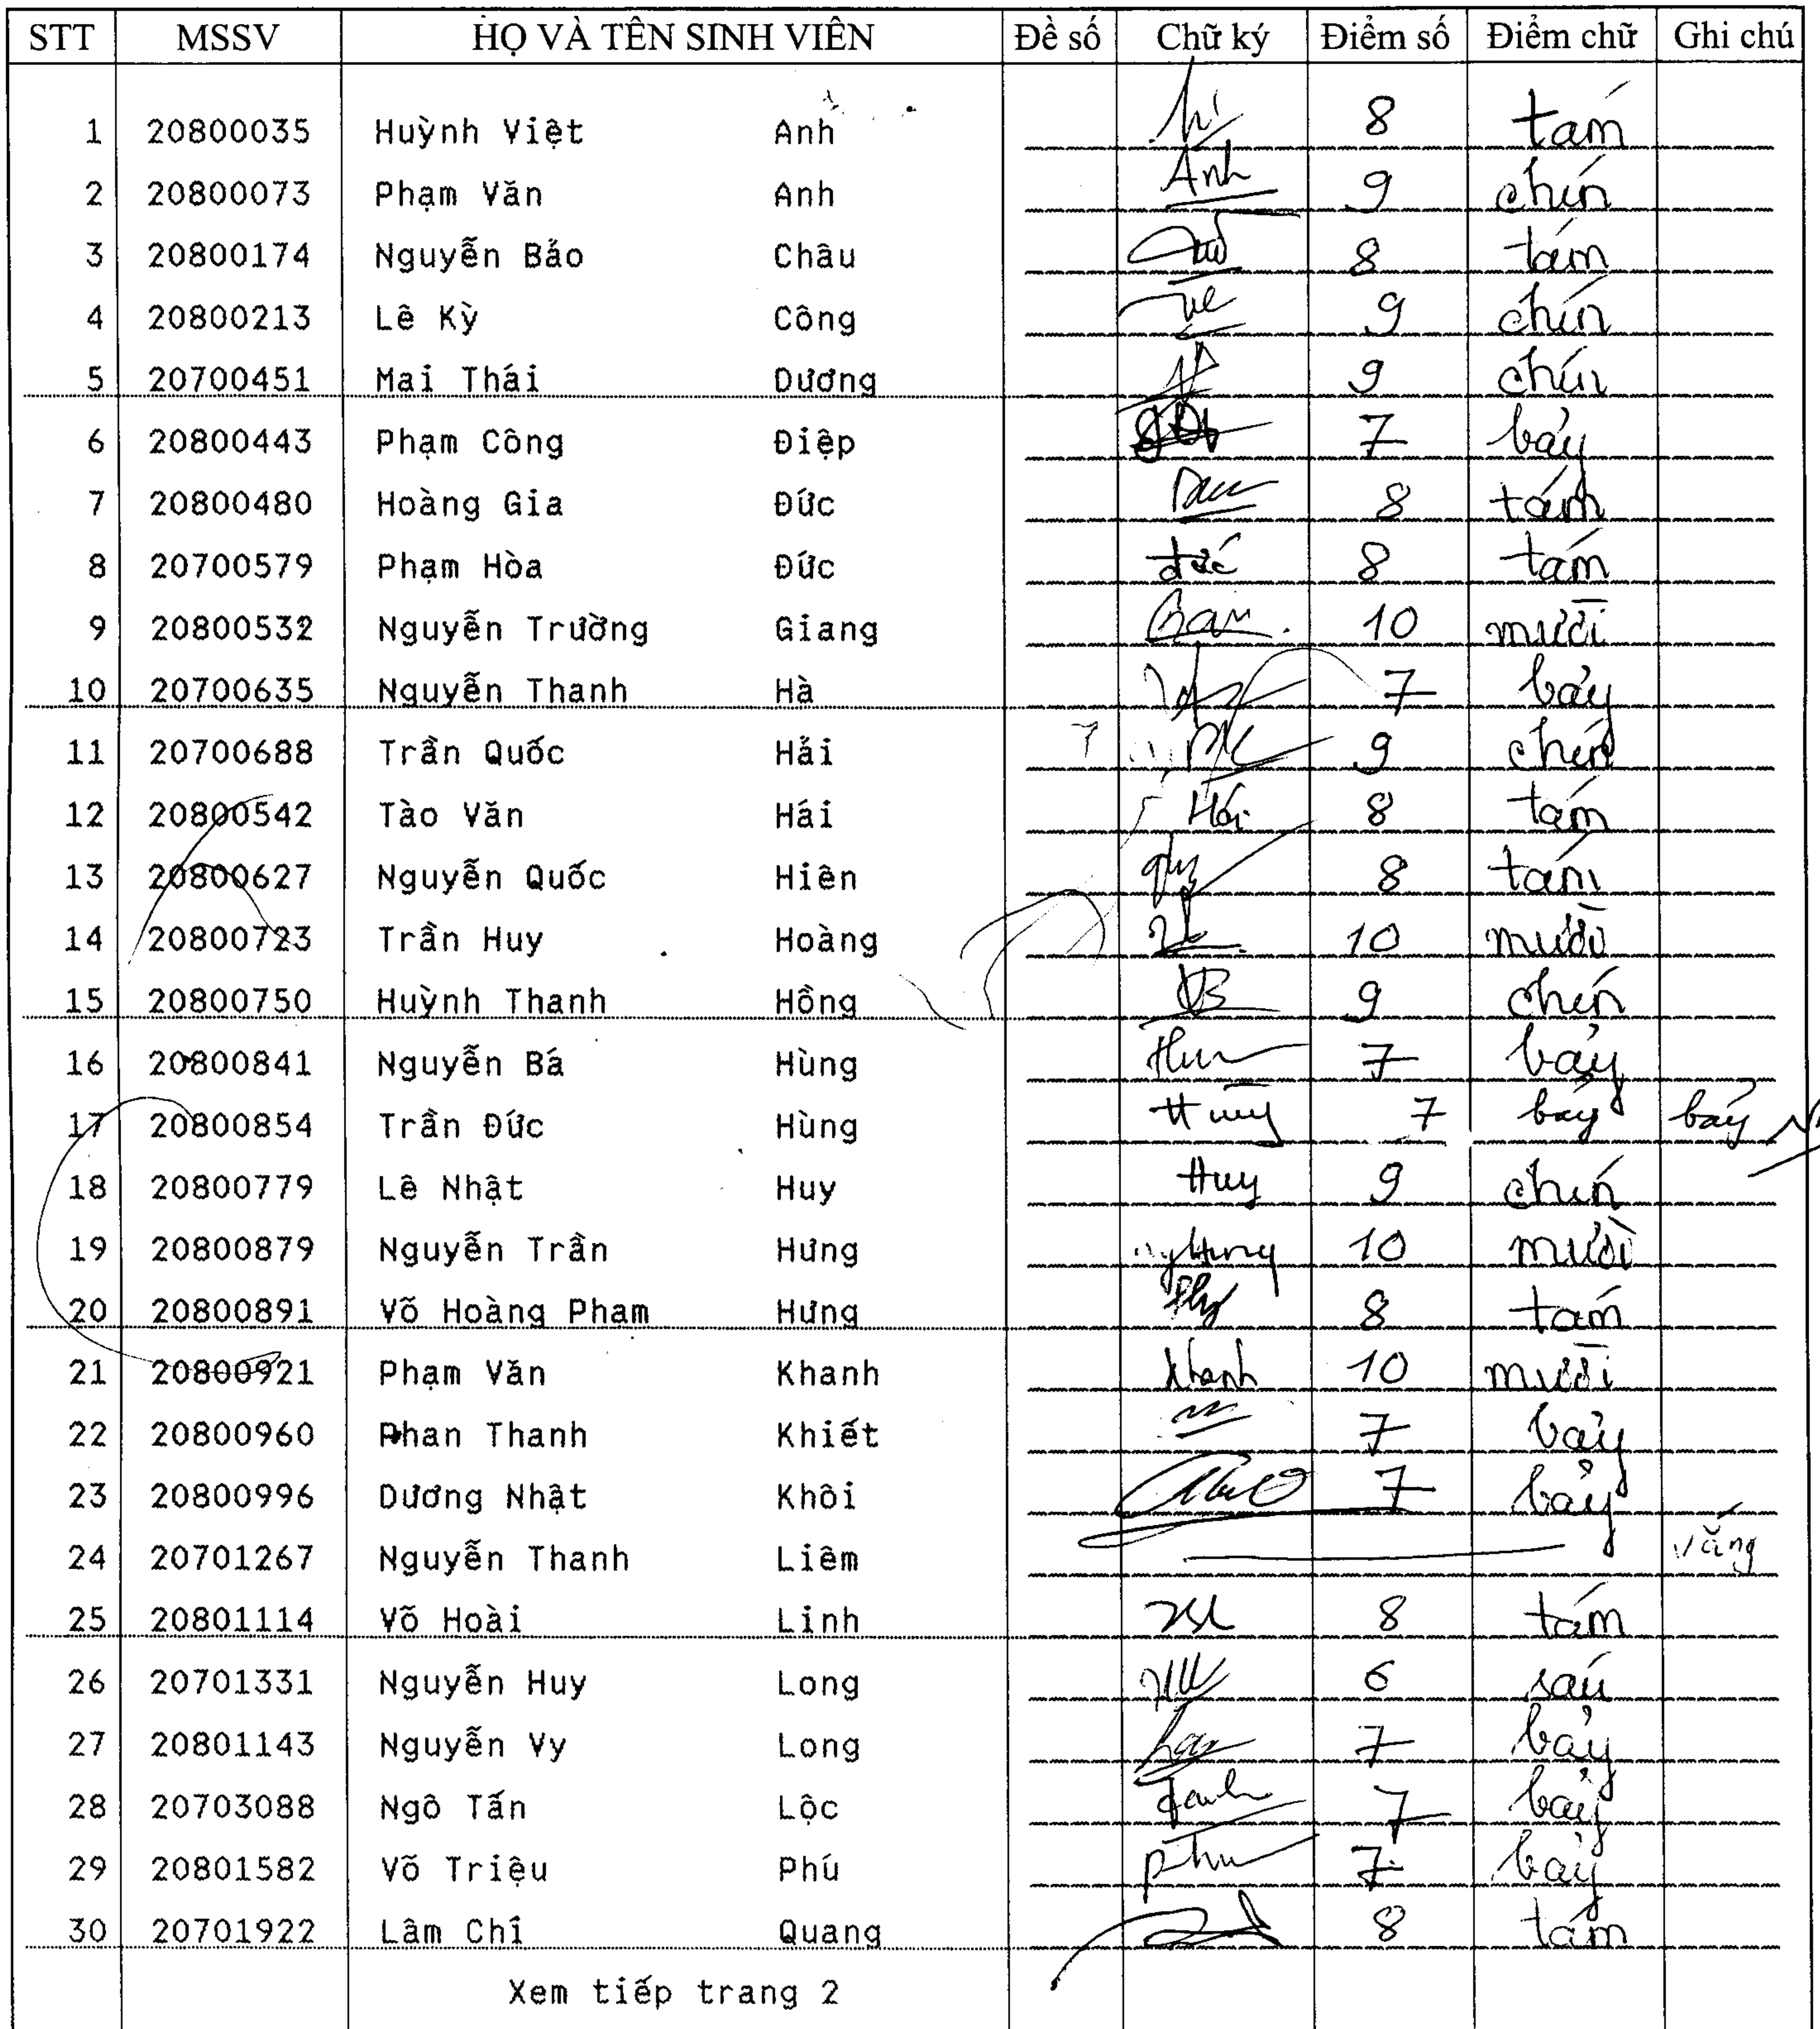 STT MSSV HỌ VÀ TÊN SINH VIÊN Đề số Chữ ký Điểm số Điểm chữ Ghi chú
1 20800035 Huỳnh Việt Anh 8 tám
2 20800073 Phạm Văn Anh Anh 9 chín
3 20800174 Nguyễn Bảo Châu 8 tám
4 20800213 Lê Kỳ Công 9 chín
5 20700451 Mai Thái Dương 9 chín
6 20800443 Phạm Công Điệp 7 bảy
7 20800480 Hoàng Gia Đức 8 tám
8 20700579 Phạm Hòa Đức đức 8 tám
9 20800532 Nguyễn Trường Giang 10 mười
10 20700635 Nguyễn Thanh Hà 7 bảy
11 20700688 Trần Quốc Hải 9 chín
12 20800542 Tào Văn Hái Hái 8 tám
13 20800627 Nguyễn Quốc Hiên 8 tám
14 20800723 Trần Huy Hoàng 10 mười
15 20800750 Huỳnh Thanh Hồng 9 chín
16 20800841 Nguyễn Bá Hùng 7 bảy
17 20800854 Trần Đức Hùng Hùng 7 bảy bảy
18 20800779 Lê Nhật Huy Huy 9 chín
19 20800879 Nguyễn Trần Hưng 10 mười
20 20800891 Võ Hoàng Phạm Hưng 8 tám
21 20800921 Phạm Văn Khanh Khanh 10 mười
22 20800960 Phan Thanh Khiết 7 bảy
23 20800996 Dương Nhật Khôi 7 bảy
24 20701267 Nguyễn Thanh Liêm vắng
25 20801114 Võ Hoài Linh 8 tám
26 20701331 Nguyễn Huy Long 6 sáu
27 20801143 Nguyễn Vy Long 7 bảy
28 20703088 Ngô Tấn Lộc 7 bảy
29 20801582 Võ Triệu Phú phu 7 bảy
30 20701922 Lâm Chí Quang 8 tám
Xem tiếp trang 2